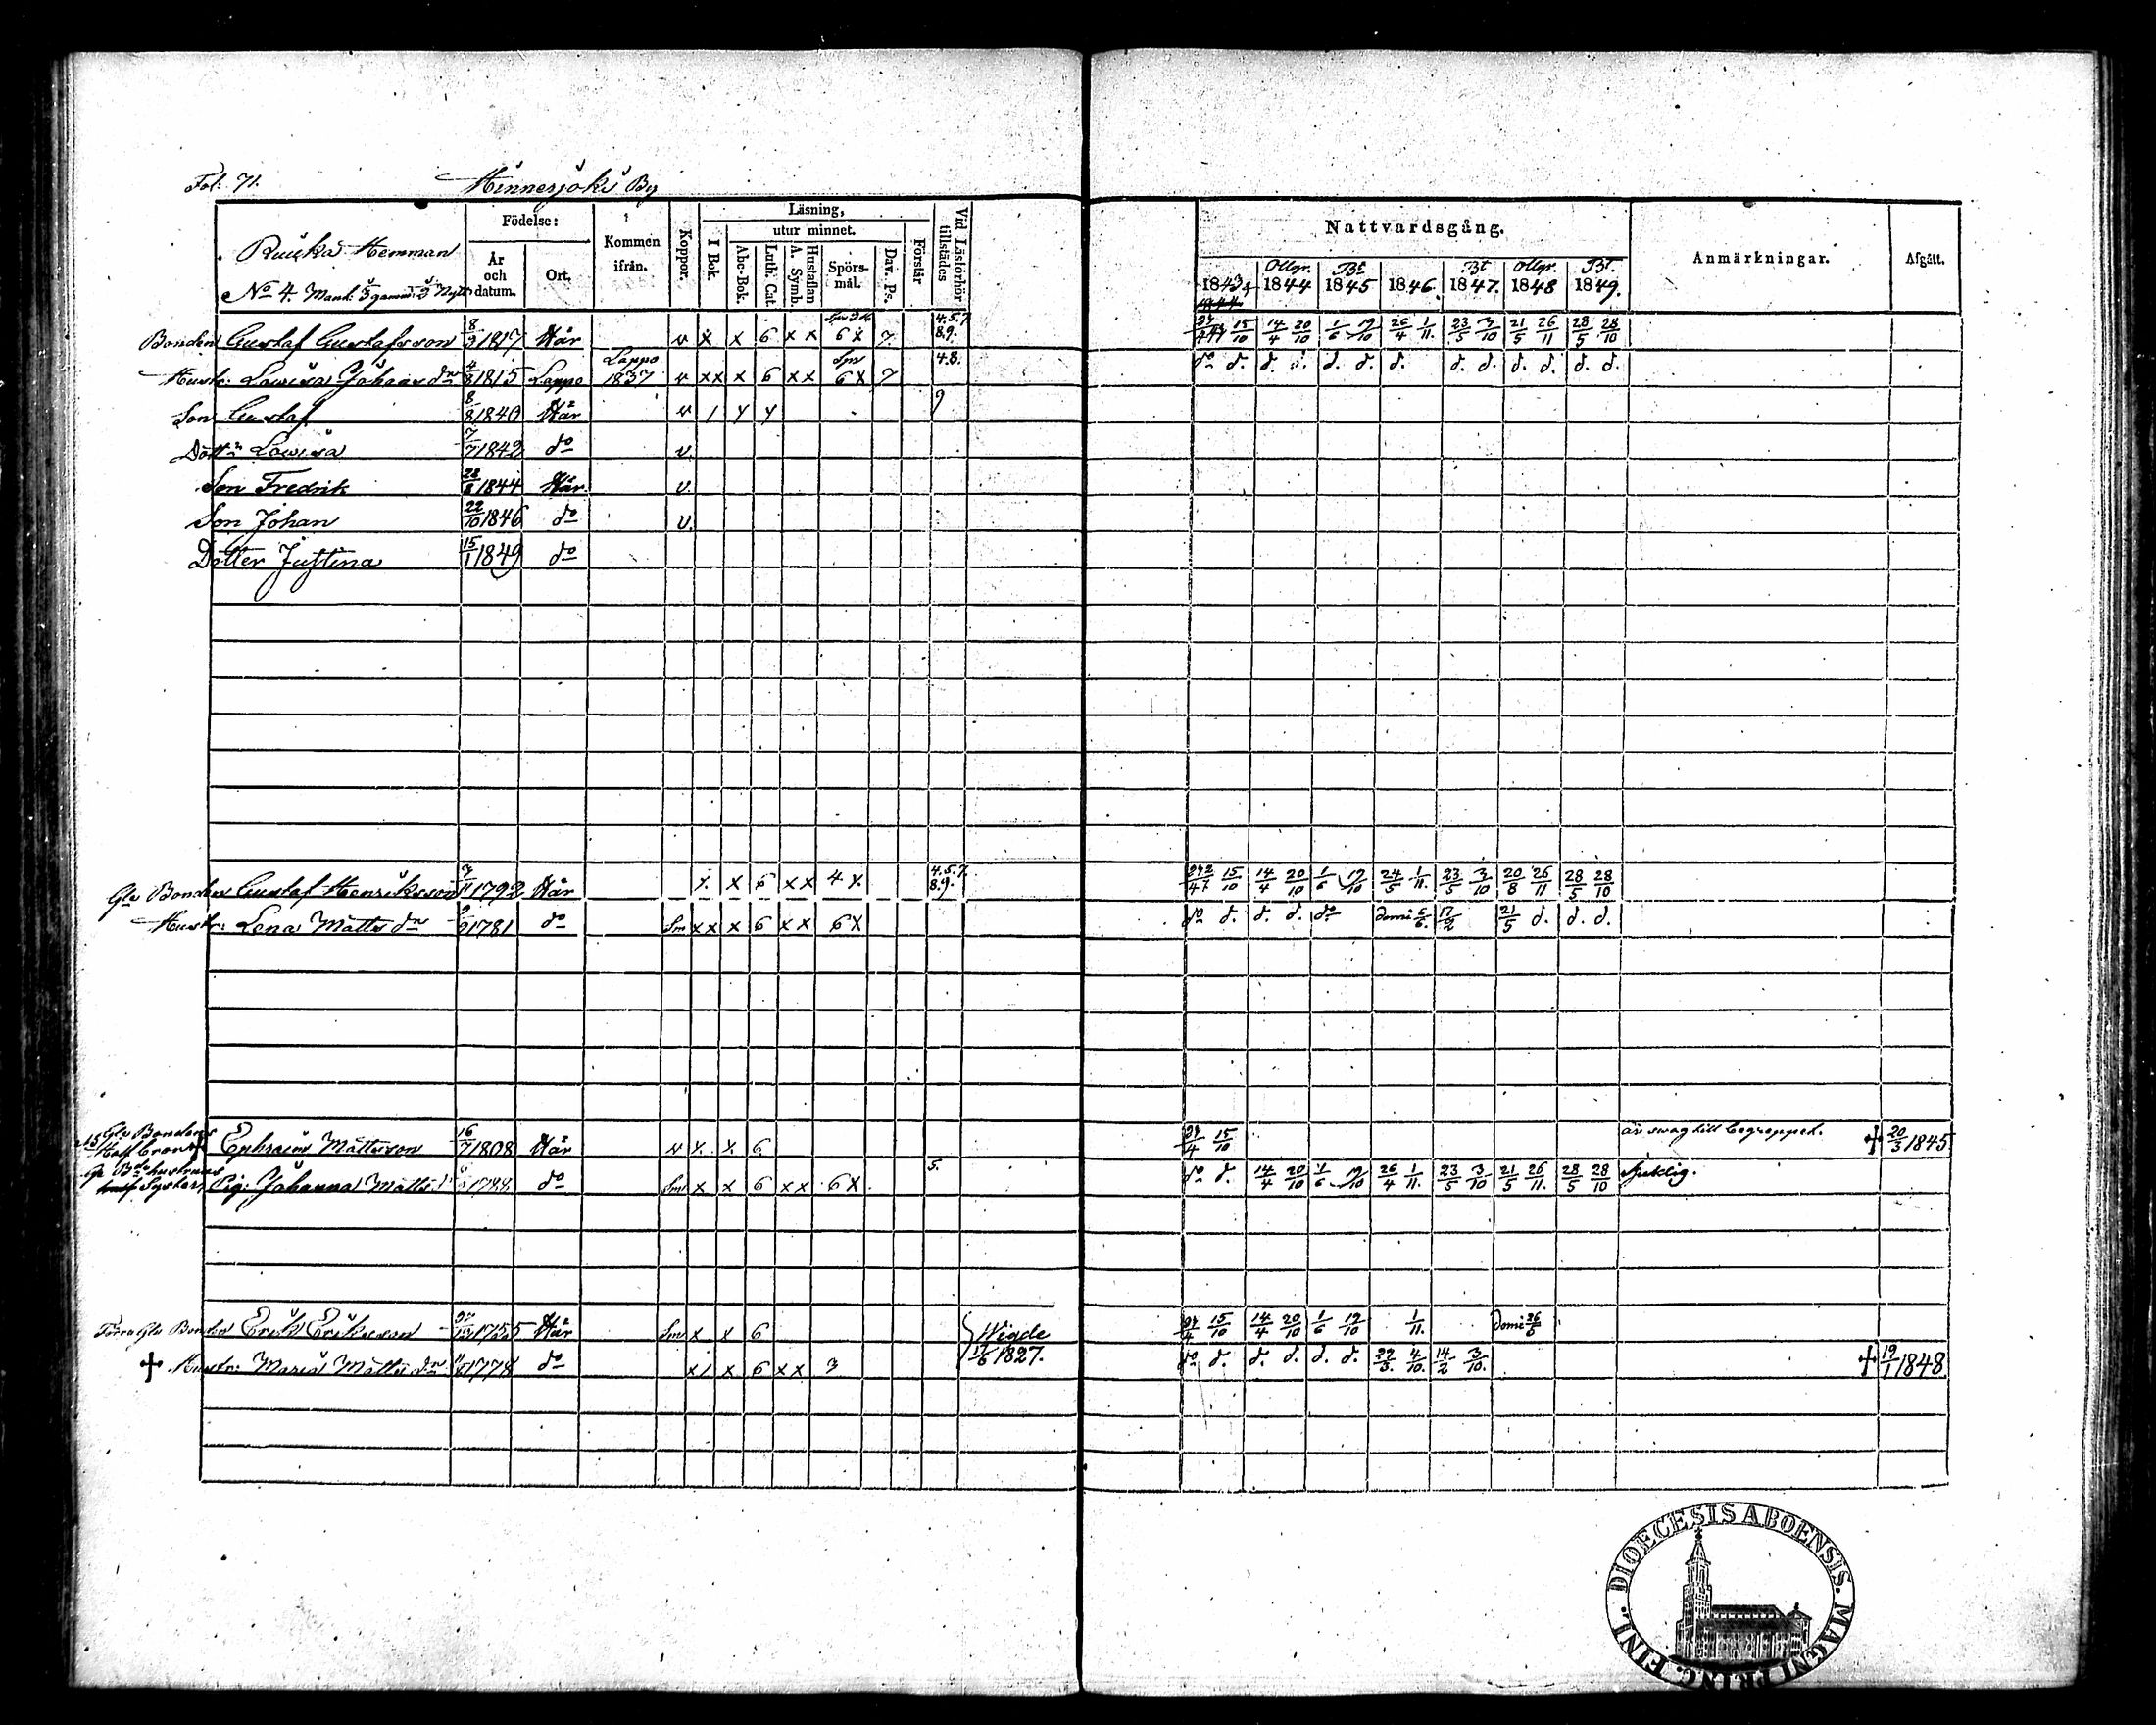 Fol: 71. Hinnerjoki By
Ruuka Hemman
No 4. Mant:
Födelse:
År och datum.
Ort.
Kommen ifrån.
Koppor.
Läsning,
I Bok.
utur minnet.
Abc-Bok.
Luth. Cat.
Hustaflan A. Symb.
Spörsmål.
Dav. Ps.
Förstår
Vid Läsförhör tillstädes
Nattvardsgång.
1843 Ollgr. 1844 Bt 1845 1846. Bt 1847. Ollgr. 1848 Bt. 1849.
Anmärkningar.
Afgått.
Bonden Gustaf Gustafsson 1817 Här v x x 6 x x 6 x 7 4.5.7 8.9. 15/10 14/4 20/10 1/6 19/10 26/4 1/11. 23/5 3/10 21/5 26/11 28/5 28/10
Hustr: Lowisa Johans dr 4/8 1815 Lappo Lappo 1837 v x x x 6 x x 6 x 7 4.8. do d. d. d. d. d. d. d. d. d. d. d. d.
Son Gustaf 8/8 1840 Här v 9
Dottr Lowisa 7/7 1842 do v.
Son Fredrik 1844 Här v.
Son Johan 22/10 1846 do v.
Dotter Justina 15/1 1849 do
Gle Bonden Gustaf Henriksson 1792 Här x 6 x x 4 4.5.7. 8.9. 15/10 14/4 20/10 1/6 19/10 24/5 1/11. 23/5 3/10 20/8 26/11 28/5 28/10
Hustr: Lena Matts dr 1781 do x x x 6 x x 6 x do d. d. d. do Domi 5/6. 17/2 21/5 d. d. d.
Gle Bondens Ephraim Mattsson 16/7 1808 Här v x 6 15/10 är swag till begreppet. † 20/3 1845
Syster, Pig: Johanna Matts dr 1788 do x x 6 x x 6 x 5. do d. 14/4 20/10 1/6 19/10 26/4 1/11. 23/5 3/10 21/5 26/11. 28/5 28/10 Sjuklig.
Förra Gle Bonden Erik Eriksson 1755 Här x x 6 Wigde 15/10 14/4 20/10 1/6 19/10 1/11. Domi
† Hustr: Maria Matts dr 1778 do x x 6 x x 3 1827. do d. d. d. d. d. 4/10. 14/2 3/10. † 19/1 1848.
DIOECESIS ABOENSIS. MAGNI PRINC. FINL.